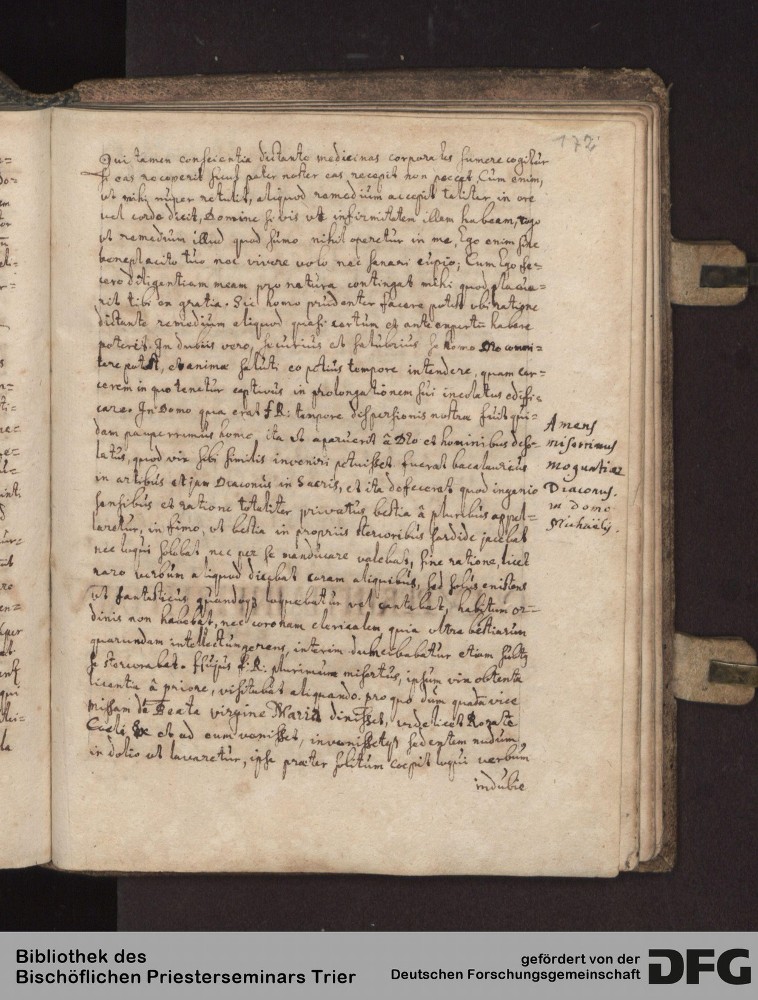 172
Qui tamen conscientia dictante medicinas corporales sumere cogitur
si eas receperit sicut pater noster eas recepit non peccet, Cum enim,
ut mihi nuper retulit, aliquod remedium accepit taliter in ore
vel corde dicit, Domine si vis ut infirmitatem illam habeam, rogo
ut remedium illud quod sumo nihil operetur in me, Ego enim sine
beneplacito tuo nec vivere volo nec sanari cupio; Cum Ego fe-
cero diligentiam meam pro natura contingat mihi quod placue-
rit tibi ex gratia. Sic homo prudenter facere potest ubi ratione
dictante remedium aliquod quasi certum et ante expertum habere
poterit. In dubiis vero, securius et salubrius se homo Deo commit-
tere potest, et animae saluti eo potius tempore intendere, quam car-
cerem in quo tenetur captivus in prolongationem sui incolatus edifi-
care. In Domo qua erat f. R: tempore dispersionis nostrae fuit qui-
dam pauperrimus homo, ita et apparuerit à Deo et hominibus deso-
latus, quod vix sibi similis inveniri potuisset fuerat bacalaureus
in artibus et jam Diaconus in Sacris, et ita defecerat quod ingenio
sensibus et ratione totaliter privatus bestia à pluribus appel-
laretur, in fimo, ut bestia in propriis stercoribus sordide jacebat
nec loqui solebat nec per se manducare valebat, sine ratione, licet
raro verbum aliquod dicebat coram aliquibus, sed solus existens
ut fantasticus quandoque loquebatur vel cantabat, habitum or-
dinis non habebat, nec coronam clericalem quia ultra bestiarum
quarundam intellectum gerens, interim dum cibabatur etiam subtus
se stercorabat. Hujus f. R: plurimum misertus, ipsum vix obtenta
licentia à priore, visitabat aliquando. pro quo dum quadam vice
missam de Beata virgine Maria dixisset, videlicet Rorate
Caeli &c et ad eum venisset, invenissetque sedentem nudum
in dolio ut lavaretur, ipse praeter solitum coepit loqui verbum
indubie
Amens
miserrimus
moguntiae
Diaconus.
in domo
Michaëlis.
Bibliothek des
Bischöflichen Priesterseminars Trier
gefördert von der
Deutschen Forschungsgemeinschaft
DFG